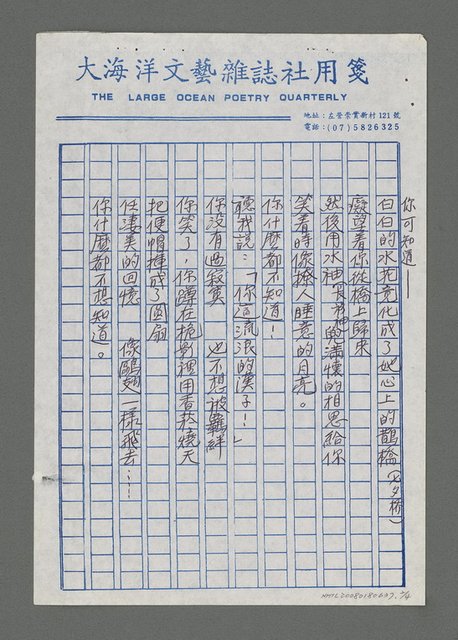 大海洋文藝雜誌社用箋
THE LARGE OCEAN POETRY QUARTERLY
地址：左營崇實新村121號
電話：(07)5826325
你可知道——
白白的水花竟化成了她心上的鵲橋（七夕橋）
癡望着你從橋上歸來
然後用水神的滿懷的相思給你
笑着時你撩人睡意的月亮。
你什麼都不知道！
聽我說：「你這流浪的漢子！」
你沒有過寂寞 也不想被羈絆
你笑了，你蹲在帆影裡用香菸燒天
把便帽捶成了圓扇
任淒美的回憶 像鷗翅一樣飛去……
你什麼都不想知道。
NMTL20080180607